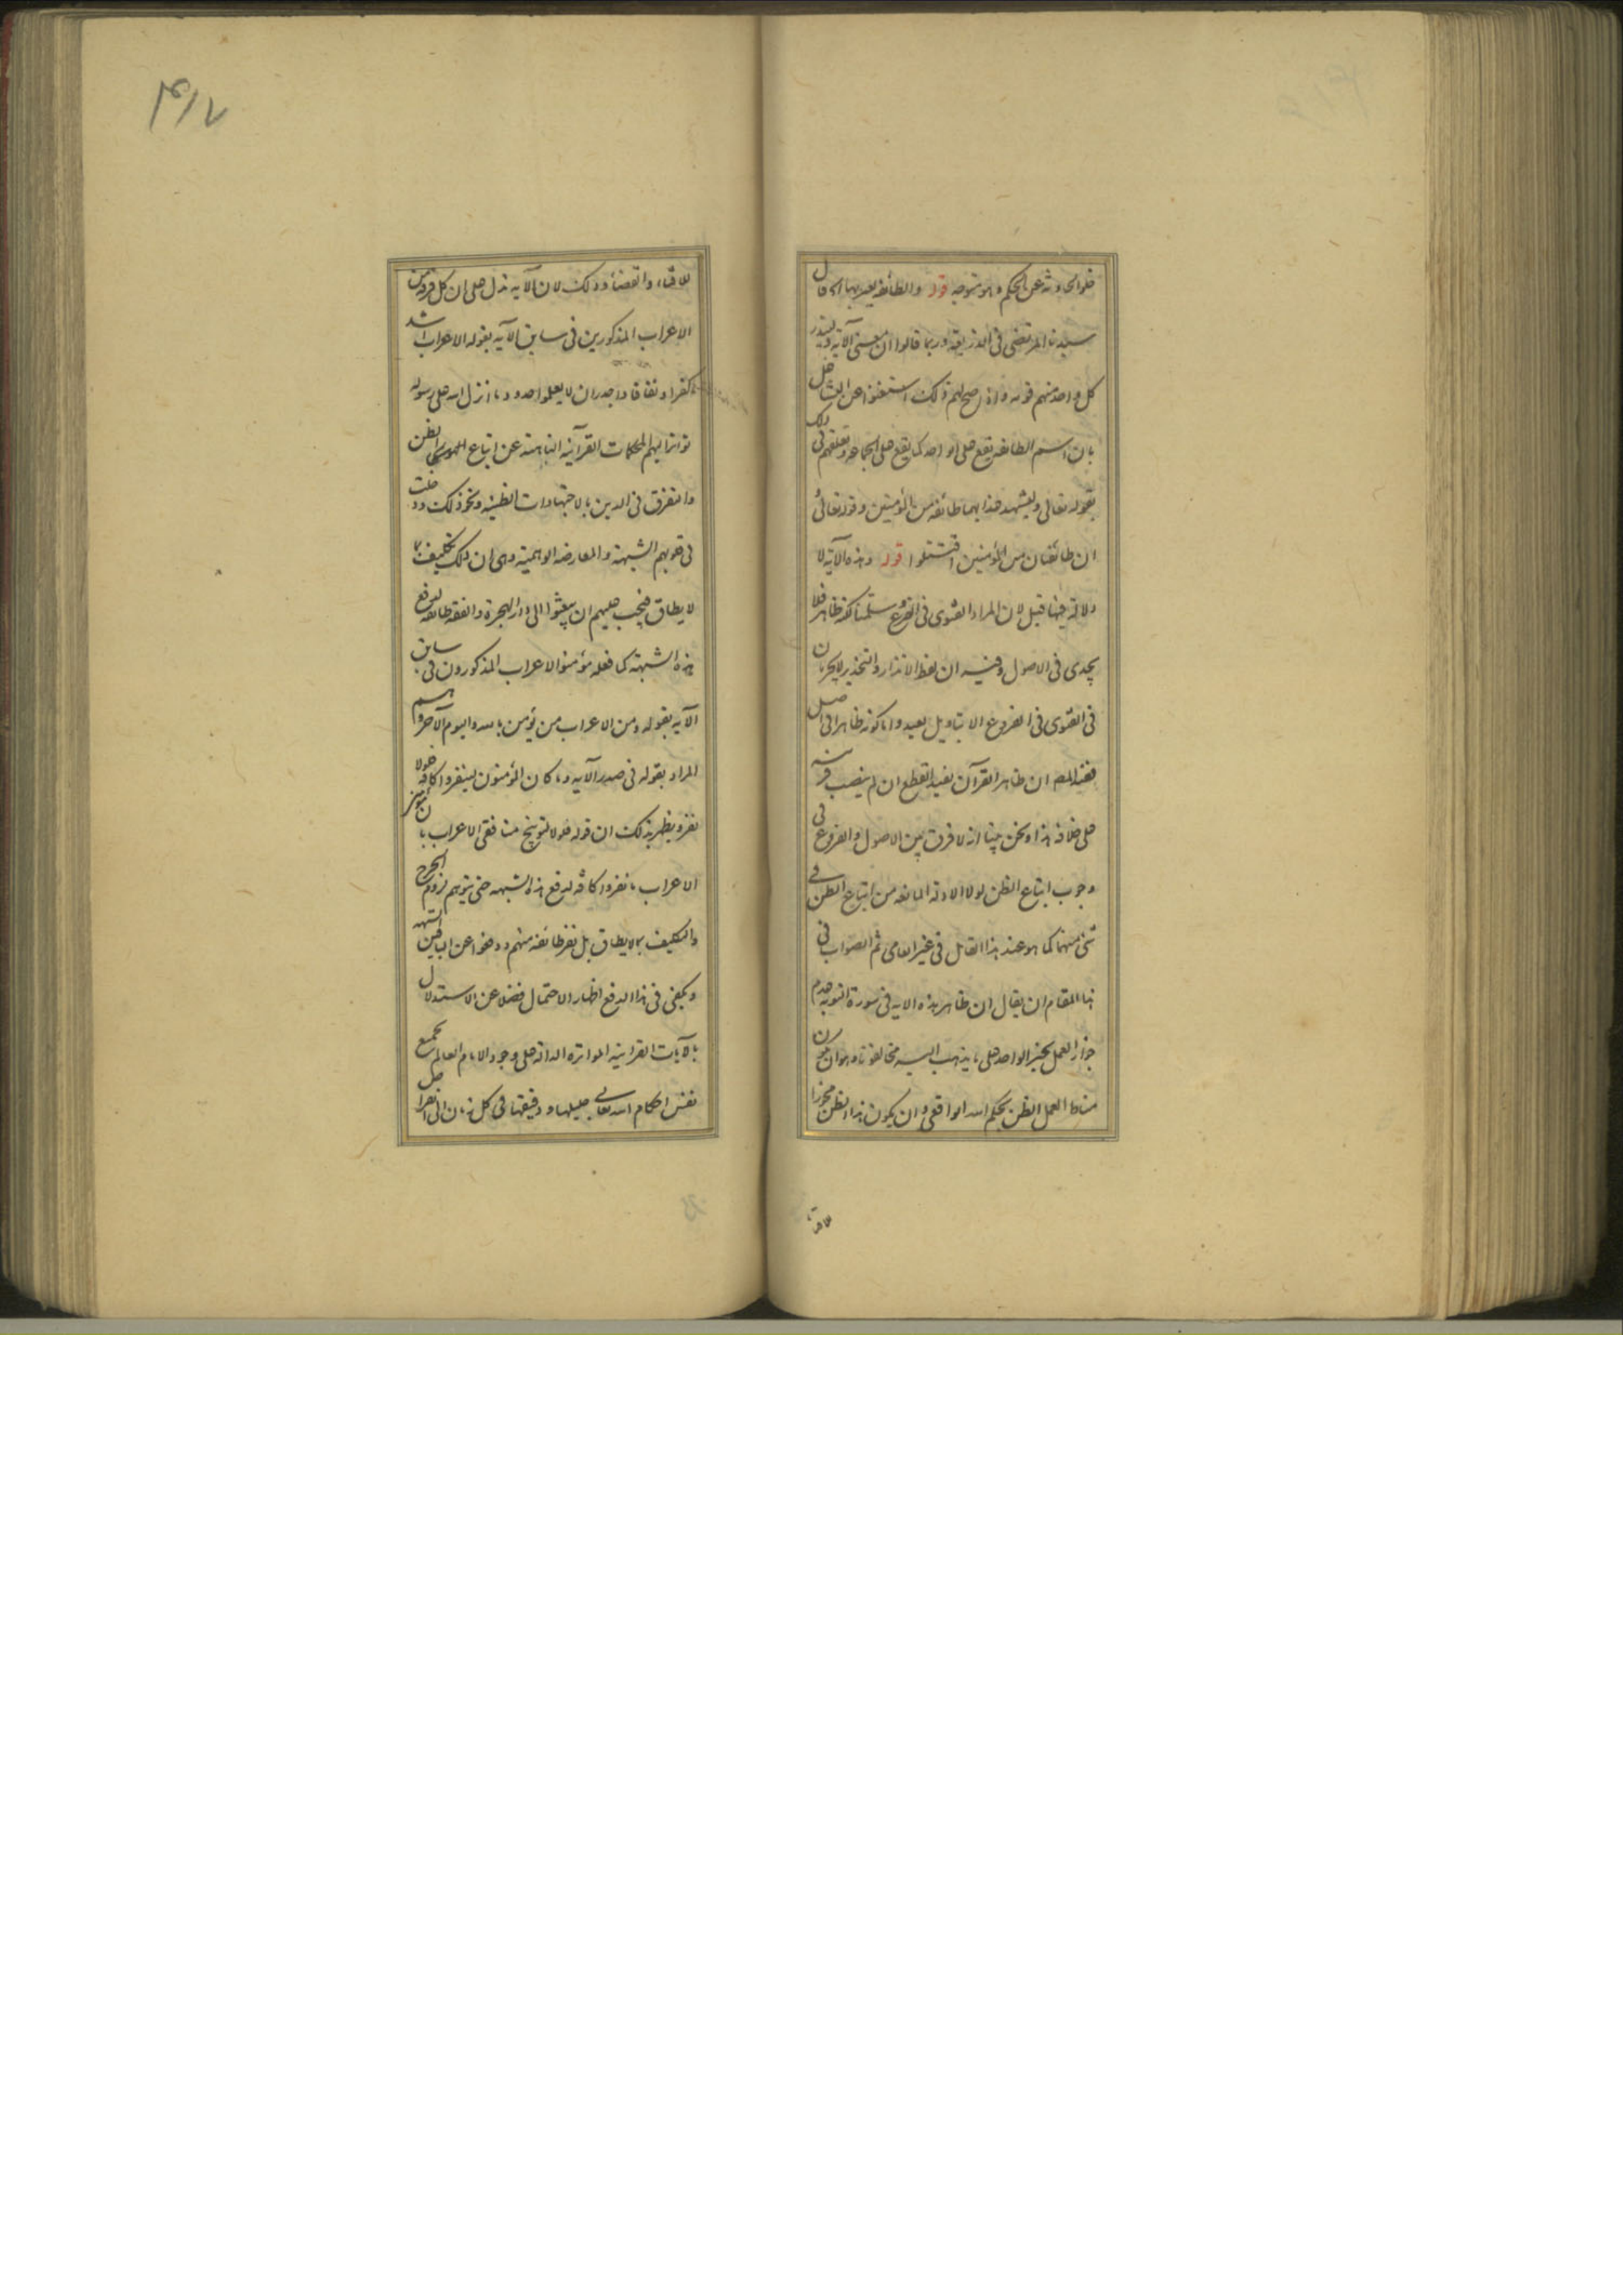 خلو الحادثة عن الحكم وهو متوجه قوله والطائفة يعبر بها الخ قال
سيدنا المرتضى في الذريعة وربما قالوا ان معنى الآية ولينذر
كل واحد منهم قومه واذا صح لهم ذلك استغنوا عن التشاغل
بان اسم الطائفة يقع على الواحد كما يقع على الجماعة وتعلقهم في ذلك
بقوله تعالى وليشهد عذابهما طائفة من المؤمنين وقوله تعالى
ان طائفتان من المؤمنين اقتتلوا قوله وهذه الآية لا
دلالة فيها قيل لان المراد الفتوى في الفروع سلمنا لكنه ظاهر فلا
يجدى في الاصول وفيه ان لفظ الانذار والتحذير لا يجريان
في الفتوى في الفروع الا بتاويل بعيد واما كونه ظاهرا في اصل
فعند المص ان ظاهر القرآن يفيد القطع ان لم ينصب قرينة
على خلافه هذا ونحن بينا انه لا فرق بين الاصول والفروع في
وجوب اتباع الظن لولا الادلة المانعة من اتباع الظن في
شئ منهما كما هو عند هذا القائل في غير العامى ثم الصواب في
هذا المقام ان يقال ان ظاهر هذه الاية في سورة التوبة عدم
جواز العمل بخبر الواحد على ما يذهب اليه مخالفونا وهو ان يكون
مناط العمل الظن بحكم الله الواقعى وان يكون هذا الظن مجوزا
للافتاء والقضاء وذلك لان الآية تدل على ان كل فرد من
الاعراب المذكورين في سابق الآية بقوله الاعراب اشد
كفرا ونفاقا واجدر ان لا يعلموا حدود ما انزل الله على رسوله
تواتر اليهم المحكمات القرآنية الناهية عن اتباع الظن
والتفرق في الدين بالاجتهادات الظنية ونحو ذلك ودخلت
في قلوبهم الشبهة والمعارضة الوهمية وهى ان ذلك تكليف بما
لا يطاق فيجب عليهم ان يبعثوا الى دار الهجرة والفقه طائفة لدفع
هذه الشبهة كما فعله مؤمنوا الاعراب المذكورون في سابق
الآية بقوله ومن الاعراب من يؤمن بالله واليوم الآخر وهم
المراد بقوله في صدر الآية وما كان المؤمنون لينفروا كافة فلولا
نفر ويظهر بذلك ان قوله فلولا توبيخ منافقى الاعراب بان مؤمنى
الاعراب ما نفروا كافة لدفع هذه الشبهة حتى يتوهم لزوم الحرج
والتكليف بما لا يطاق بل نفر طائفة منهم ودفعوا عن الباقين الشبهة
ويكفى في هذا الدفع اظهار الاحتمال فضلا عن الاستدلال
بالآيات القرآنية المتواترة الدالة على وجود الامام العالم بجميع
نفس احكام الله تعالى جليلها ودقيقها في كل زمان الى انقراض